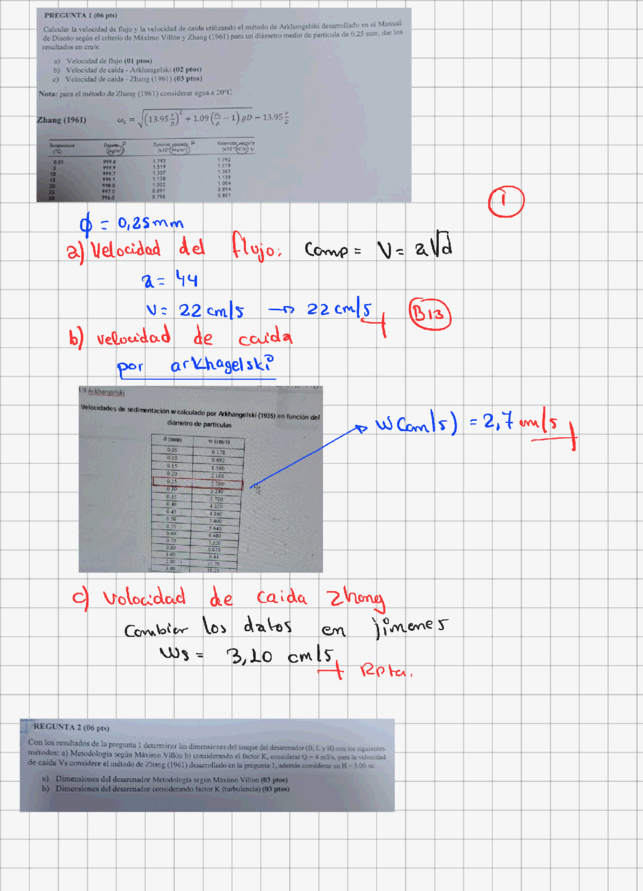 PREGUNTA 1 (06 pts)
Calcular la velocidad de flujo y la velocidad de caída utilizando el método de Arkhangelski desarrollado en el Manual
de Diseño según el criterio de Máximo Villón y Zhang (1961) para un diámetro medio de partícula de 0.25 mm, dar los
resultados en cm/s:
a) Velocidad de flujo (01 ptos)
b) Velocidad de caída - Arkhangelski (02 ptos)
c) Velocidad de caída - Zhang (1961) (03 ptos)
Nota: para el método de Zhang (1961) considerar agua a 20°C
Zhang (1961) ωs = √((13.95 ν/D)² + 1.09 (ρs/ρ − 1) gD) − 13.95 ν/D
1
ϕ = 0,25mm
a) Velocidad del flujo: Comp = V = a√d
a = 44
V = 22 cm/s → 22 cm/s
B13
b) velocidad de caida
por arkhagelski
1.9 Arkhangelski
Velocidades de sedimentación w calculado por Arkhangelski (1935) en función del
diámetro de partículas
d (mm) w (cm/s)
0.05 0.178
0.10 0.692
0.15 1.560
0.20 2.160
0.25 2.700
0.30 3.240
0.35 3.780
0.40 4.320
0.45 4.860
0.50 5.400
0.55 5.940
0.60 6.480
w(cm/s) = 2,7 cm/s
c) Volocidad de caida Zhong
Combier los datos en jimenes
Ws = 3,10 cm/s Rpta.
REGUNTA 2 (06 pts)
Con los resultados de la pregunta 1 determinar las dimensiones del tanque del desarenador (B, L y H) con los siguientes
métodos: a) Metodología según Máximo Villón b) considerando el factor K, considerar Q = 4 m3/s, para la velocidad
de caída Vs considere el método de Zhang (1961) desarrollado en la pregunta 1, además considerar un H = 3.00 m:
a) Dimensiones del desarenador Metodología según Máximo Villon (03 ptos)
b) Dimensiones del desarenador considerando factor K (turbulencia) (03 ptos)